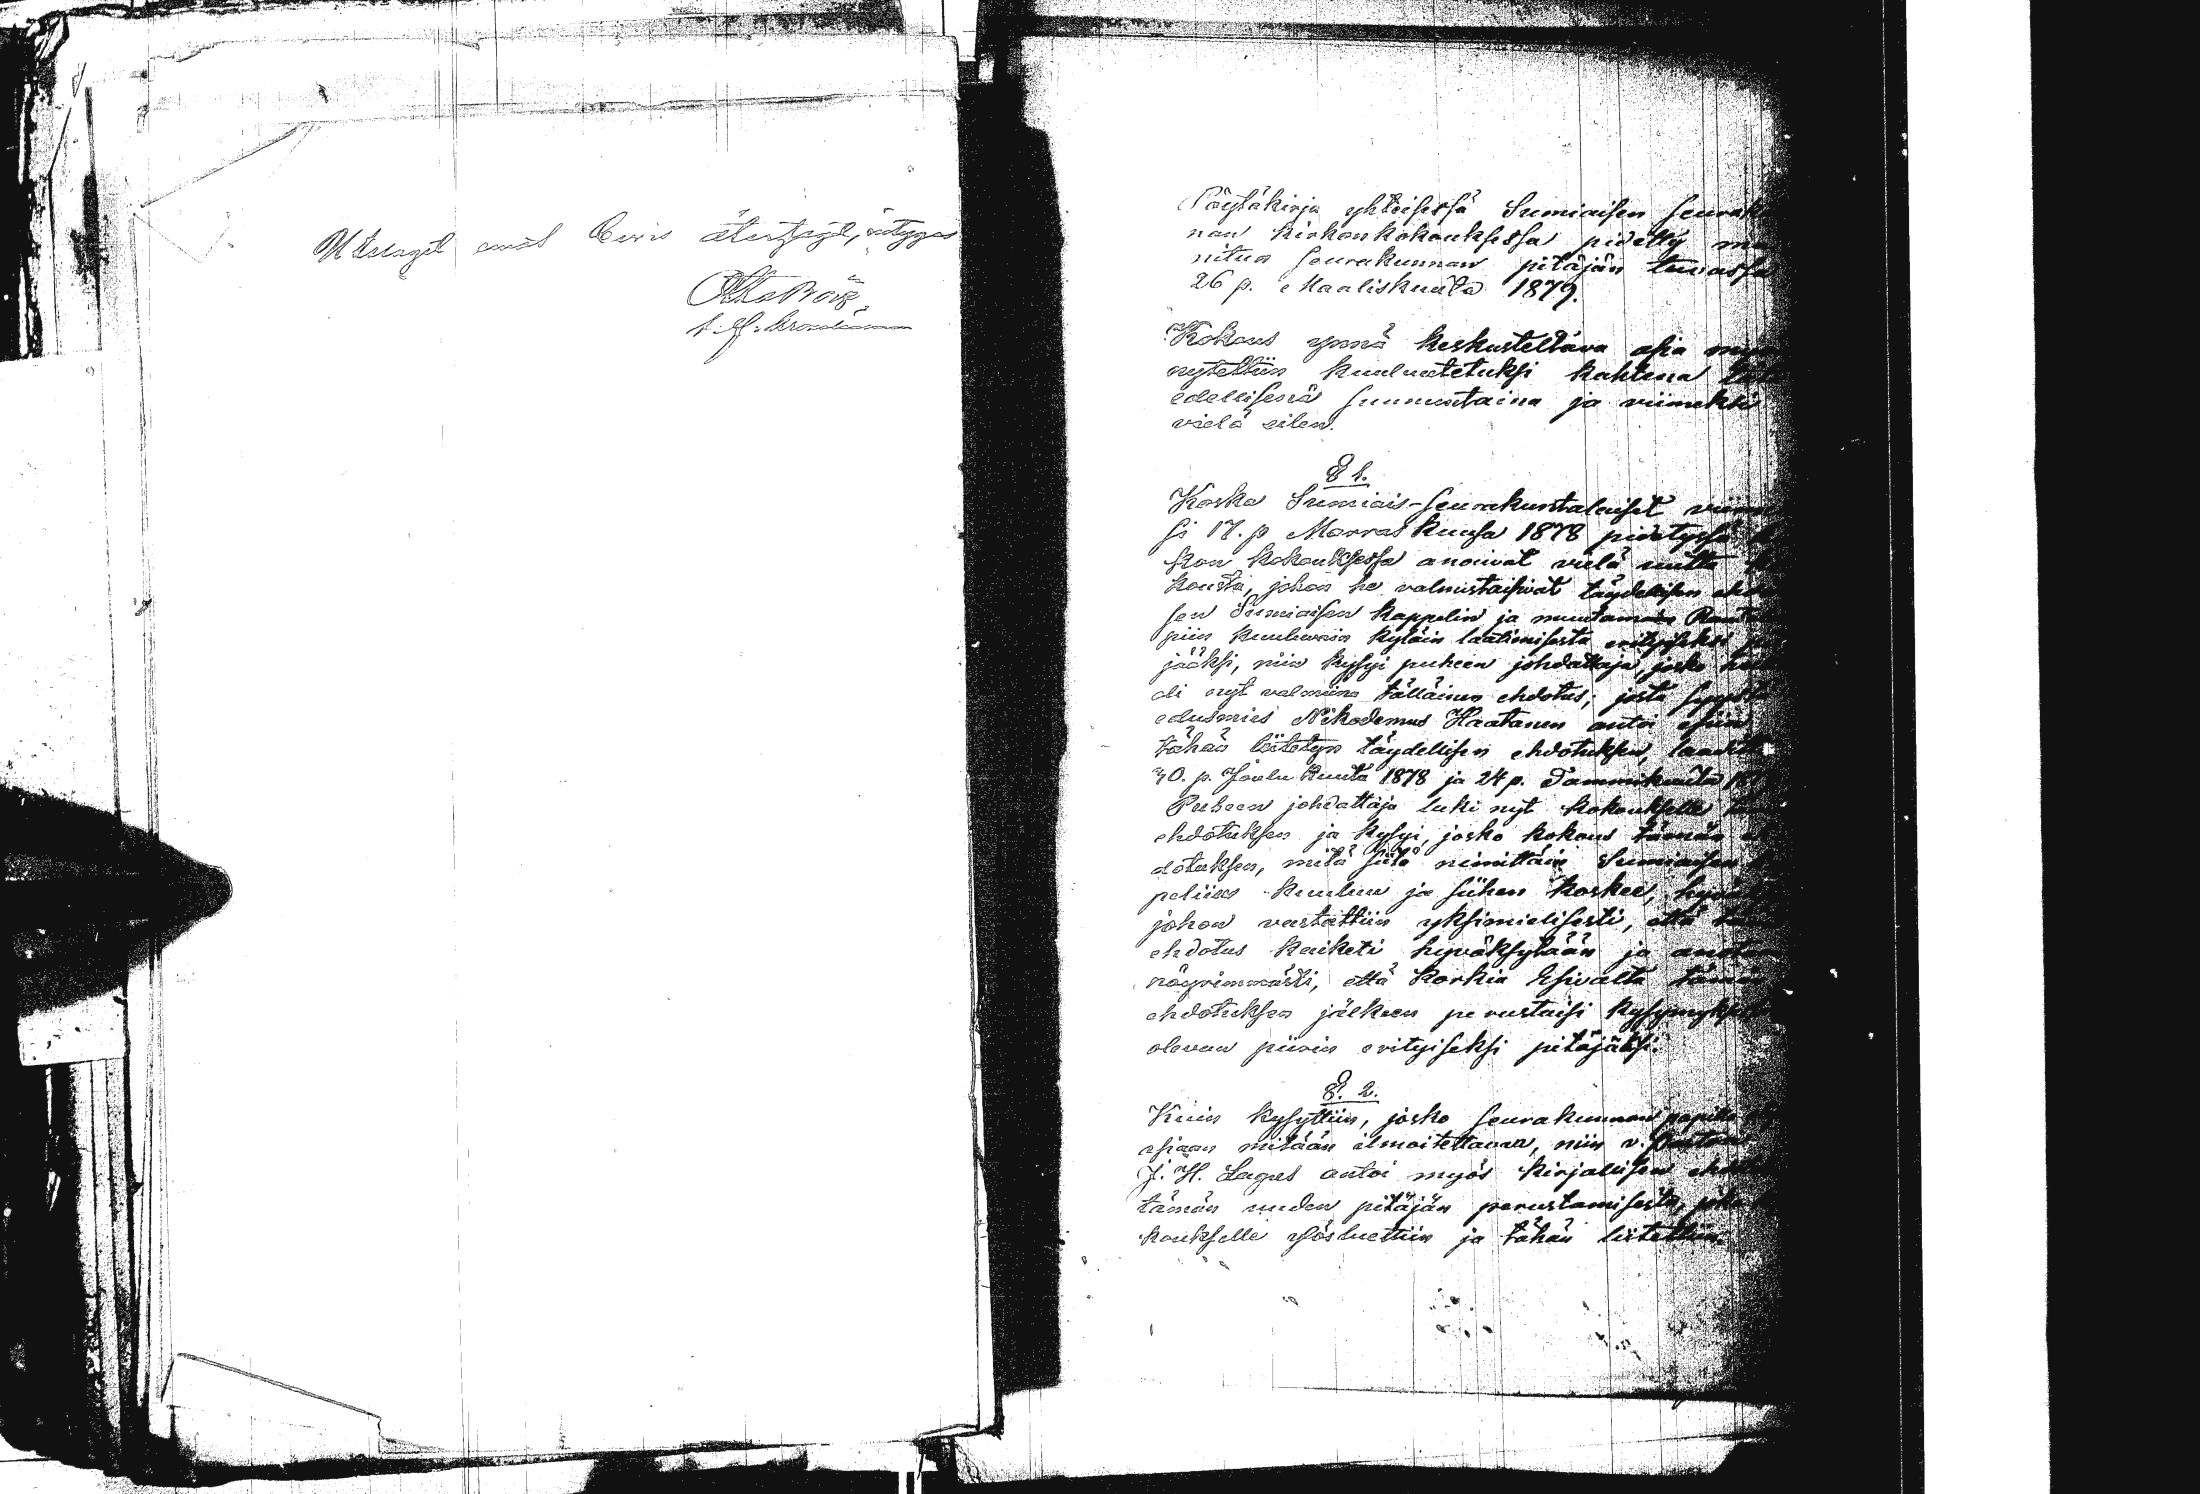 Utslaget emot bevis återtagit, intygas
Otto Boig
Pöytäkirja yhteisessä Sumiaisen seurakun
nan kirkonkokouksessa pidetty mai
nitun seurakunnan pitäjän tuvassa
26 p. Maaliskuuta 1879.
Kokous ynnä keskusteltava asia myön
nytettiin kuulutetuksi kahtena
edellisenä sunnuntaina ja viimeksi
vielä eilen.
§ 1.
Koska Sumiais-seurakuntalaiset viimek
si 17. p Marraskuusa 1878 pidetyssä kir
kon kokouksessa anoivat vielä uutta ko
kousta, johon he valmistaisivat täydellisen ehdotuk
sen Sumiaisen kappelin ja muutaman Raut
piin kuuluvain kyläin laatimisesta erityiseksi pitä
jääksi, niin kysyi puheen johdattaja, josko heillä
oli nyt valmiina tälläinen ehdotus; josta syystä
edusmies Nikodemus Haatanen antoi esiin
tähän liitetyn täydellisen ehdotuksen, laaditun
30. p. Joulukuuta 1878 ja 24 p. Tammikuuta 1879
Puheen johdattaja luki nyt kokoukselle tämän
ehdotuksen ja kysyi, josko kokous tämän eh
dotuksen, mitä siitä nimittäin Sumiaisen kap
peliin kuuluu ja siihen koskee, hyväksyy
johon vastattiin yksimielisesti, että tämä
ehdotus kaiketi hyväksytään ja anotaan
nöyrimmästi, että Korkia Esivalta tämän
ehdotuksen jälkeen perustaisi kysymyksessä
olevan piirin erityiseksi pitäjäksi.
§. 2.
Kuin kysyttiin, josko seurakunnan papilla
asiaan mitään ilmoitettavaa, niin v. Pastori
J. H. Lagus antoi myös kirjallisen ehdotuksen
tämän uuden pitäjän perustamisesta, joka ko
koukselle ylösluettiin ja tähän liitettiin.